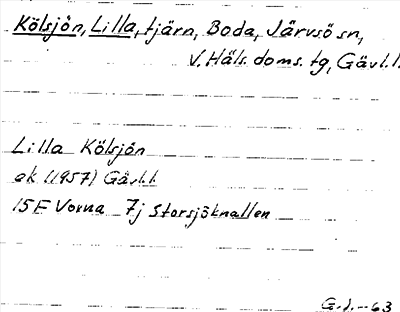 Kölsjön, Lilla, tjärn, Boda, Järvsö sn,
V. Häls. doms. tg, Gävl. l.
Lilla Kölsjön
ek (1957) Gävl. l
15F Vorna 7j Storsjöknallen
G. J. -63